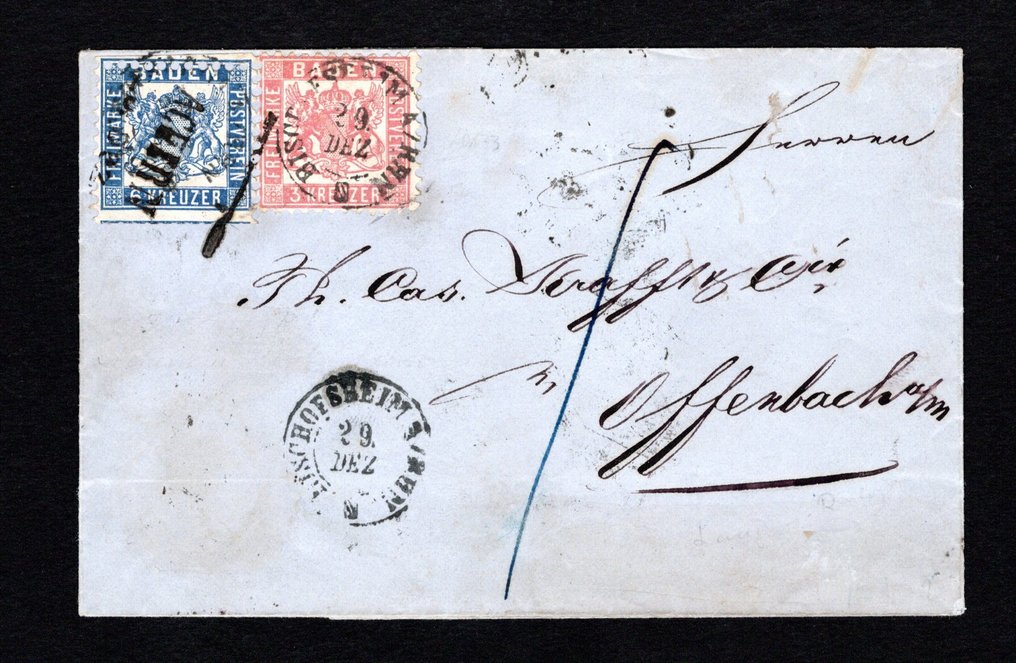 BADEN
FREIMARKE
POSTVEREIN
6 KREUZER
BADEN
FREIMARKE
POSTVEREIN
3 KREUZER
29.
DEZ
Herren
Th. Cas. Krafft & Cie
Offenbach a/m
BISCHOFSHEIM A/RHN
29.
DEZ